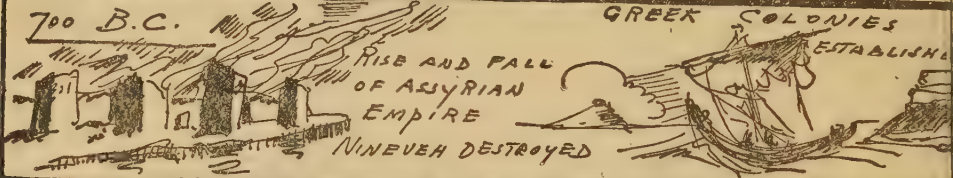 700 B.C.
RISE AND FALL
OF ASSYRIAN
EMPIRE
NINEVEH DESTROYED
GREEK COLONIES